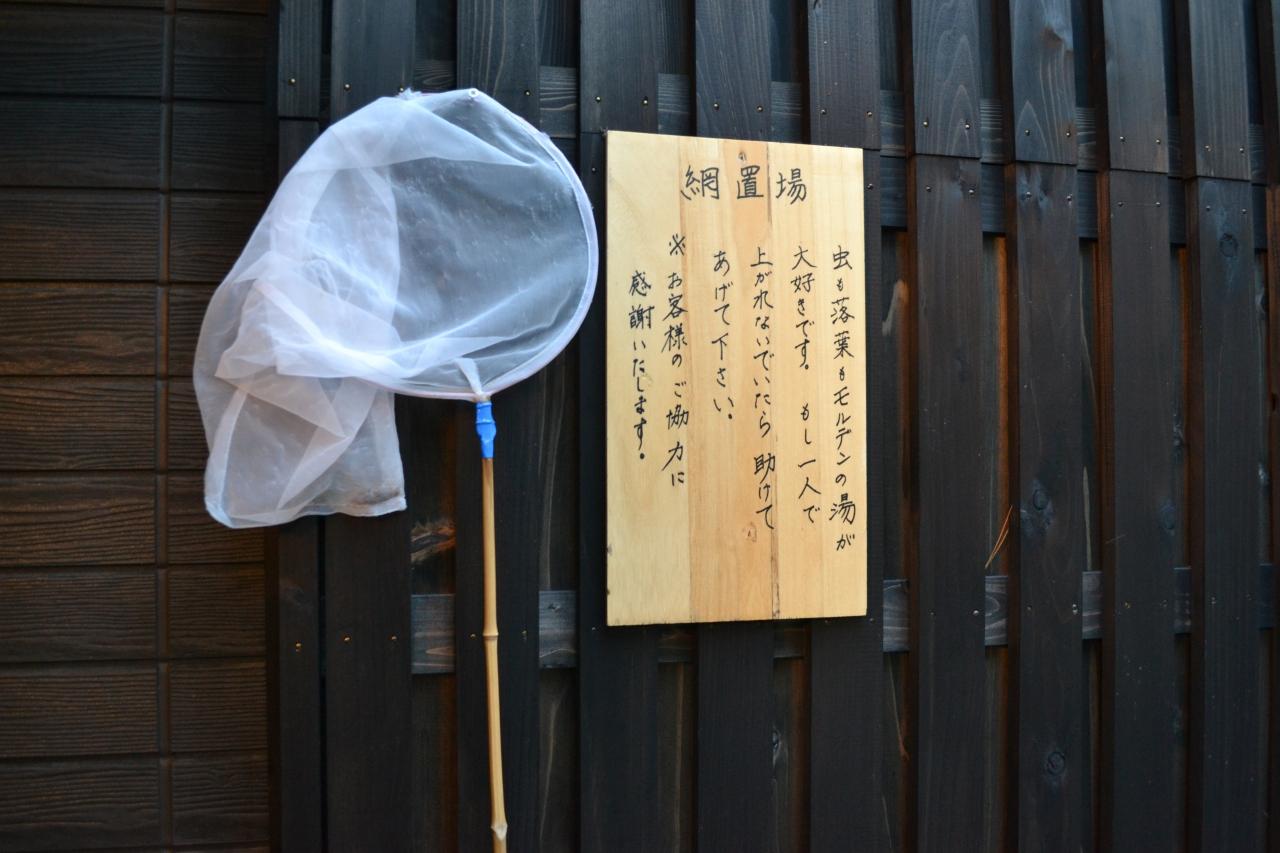 網置場
虫も落葉もモルデンの湯が
大好きです。もし一人で
上がれないでいたら助けて
あげて下さい。
※お客様のご協力に
感謝いたします。